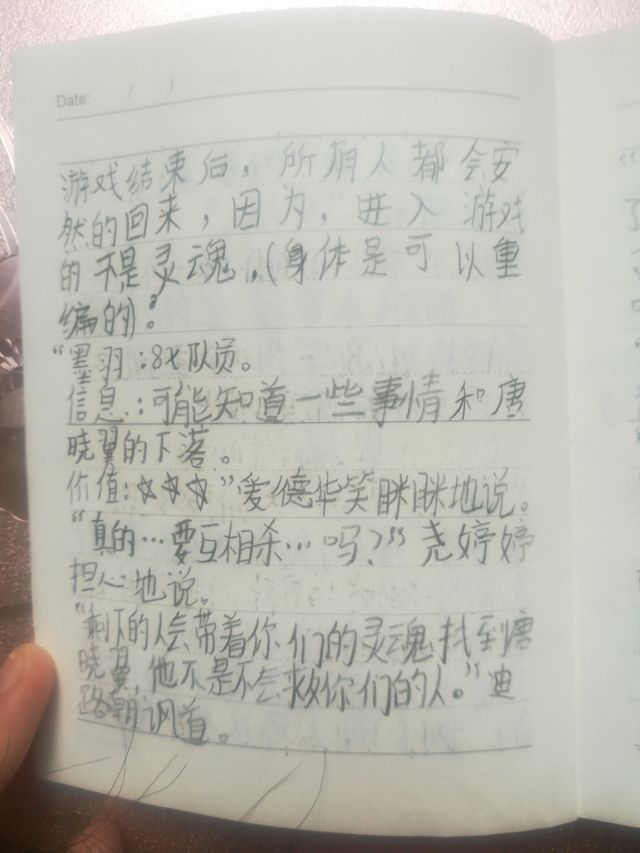 Date: / /
游戏结束后，所有人都会安
然的回来，因为，进入游戏
的不是灵魂，(身体是可以重
编的)。”
“墨羽：8X队员。
信息：可能知道一些事情和唐
晓翼的下落。
价值：☆☆☆”爱德华笑眯眯地说。
“真的…要互相杀…吗？”尧婷婷
担心地说。
“剩下的人会带着你们的灵魂找到唐
晓翼，他不是不会救你们的人。”迪
路朝讽道。